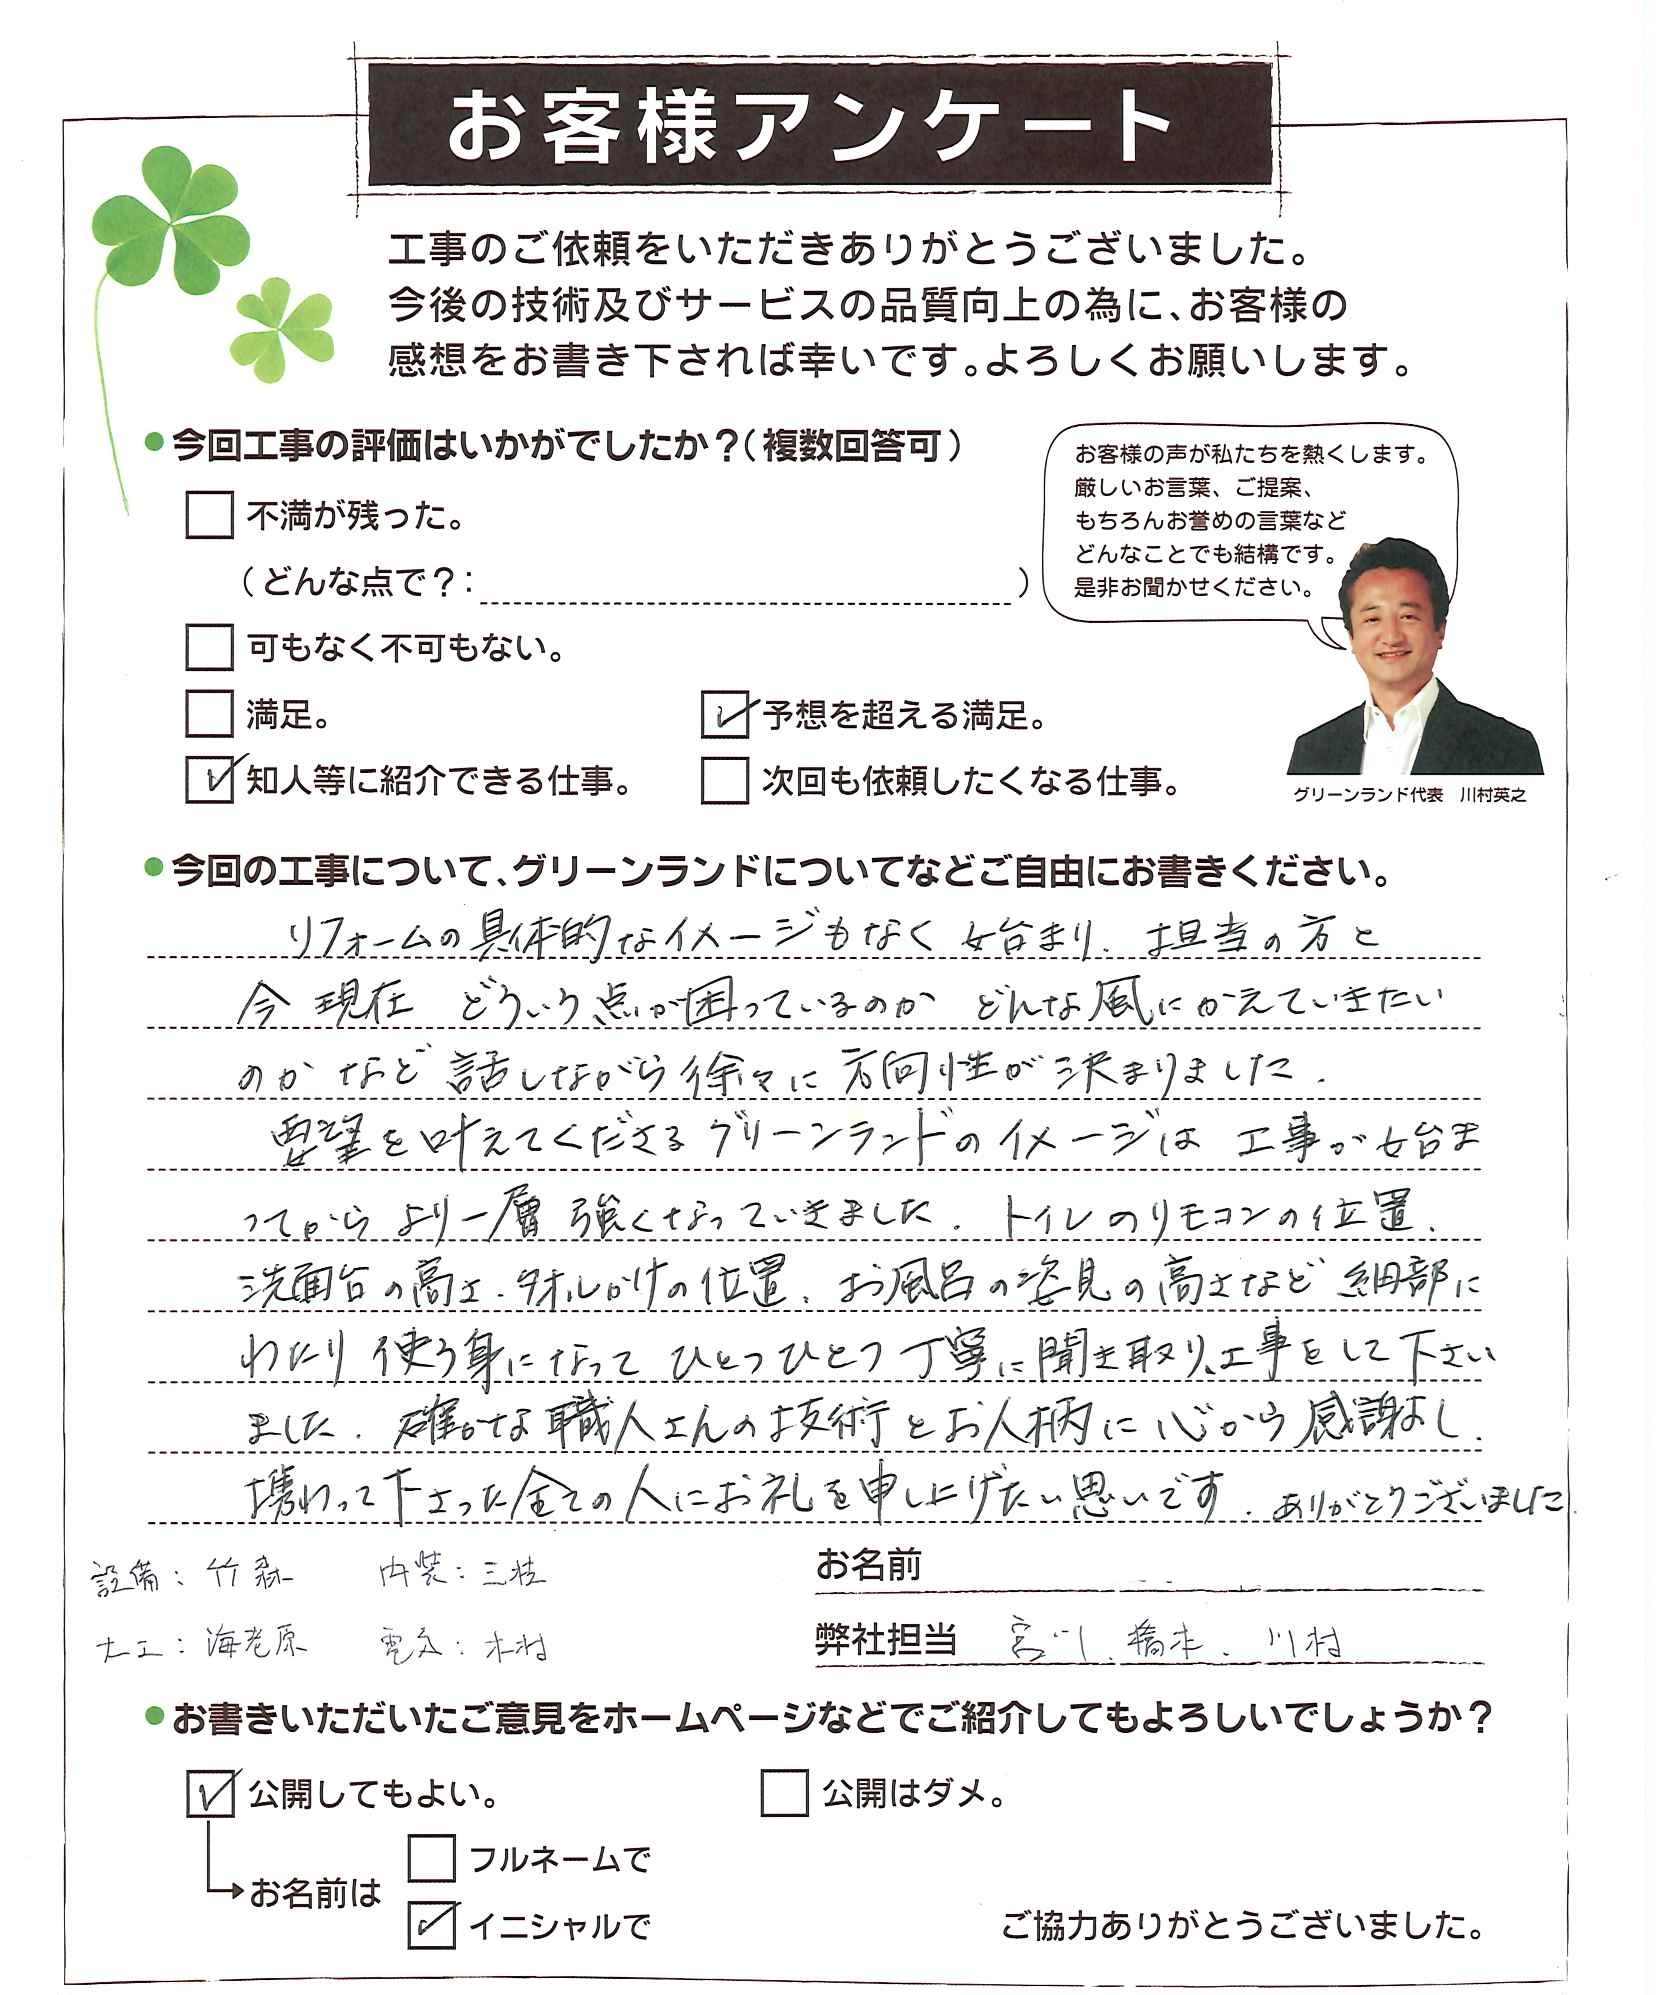 お客様アンケート
工事のご依頼をいただきありがとうございました。
今後の技術及びサービスの品質向上の為に、お客様の
感想をお書き下されば幸いです。よろしくお願いします。
●今回工事の評価はいかがでしたか?(複数回答可)
お客様の声が私たちを熱くします。
厳しいお言葉、ご提案、
もちろんお誉めの言葉など
どんなことでも結構です。
是非お聞かせください。
不満が残った。
(どんな点で?: )
可もなく不可もない。
満足。
予想を超える満足。
知人等に紹介できる仕事。
次回も依頼したくなる仕事。
グリーンランド代表 川村英之
●今回の工事について、グリーンランドについてなどご自由にお書きください。
リフォームの具体的なイメージもなく 始まり、担当の方と
今 現在 どういう点が困っているのか どんな風にかえていきたい
のか など 話しながら 徐々に 方向性が 決まりました.
要望を叶えてくださる グリーンランドの イメージは 工事が 始ま
ってから より一層 強くなっていきました. トイレのリモコンの位置.
洗面台の高さ、タオルかけの位置、お風呂の姿見の高さなど 細部に
わたり 使う身になって ひとつひとつ 丁寧に聞き取り、工事をして下さい
ました. 確かな職人さんの技術とお人柄に心から感謝し、
携わって下さった全ての人にお礼を申し上げたい思いです. ありがとうございました.
設備: 竹森 内装: 三枝
お名前
大工: 海老原 電気: 木村
弊社担当 宮川、橋本、川村
●お書きいただいたご意見をホームページなどでご紹介してもよろしいでしょうか?
公開してもよい。
公開はダメ。
お名前は
フルネームで
イニシャルで
ご協力ありがとうございました。